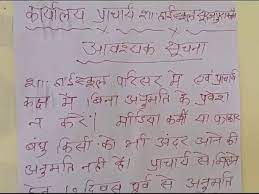 कार्यालय प्राचार्य शा. हाईस्कूल
आवश्यक सूचना
शा. हाईस्कूल परिसर में एवं प्राचार्य
कक्ष में बिना अनुमति के प्रवेश
न करें। मीडिया कर्मी या पत्रकार
बंधु किसी को भी अंदर आने की
अनुमति नहीं है। प्राचार्य से मिलने
दिवस पूर्व से अनुमति